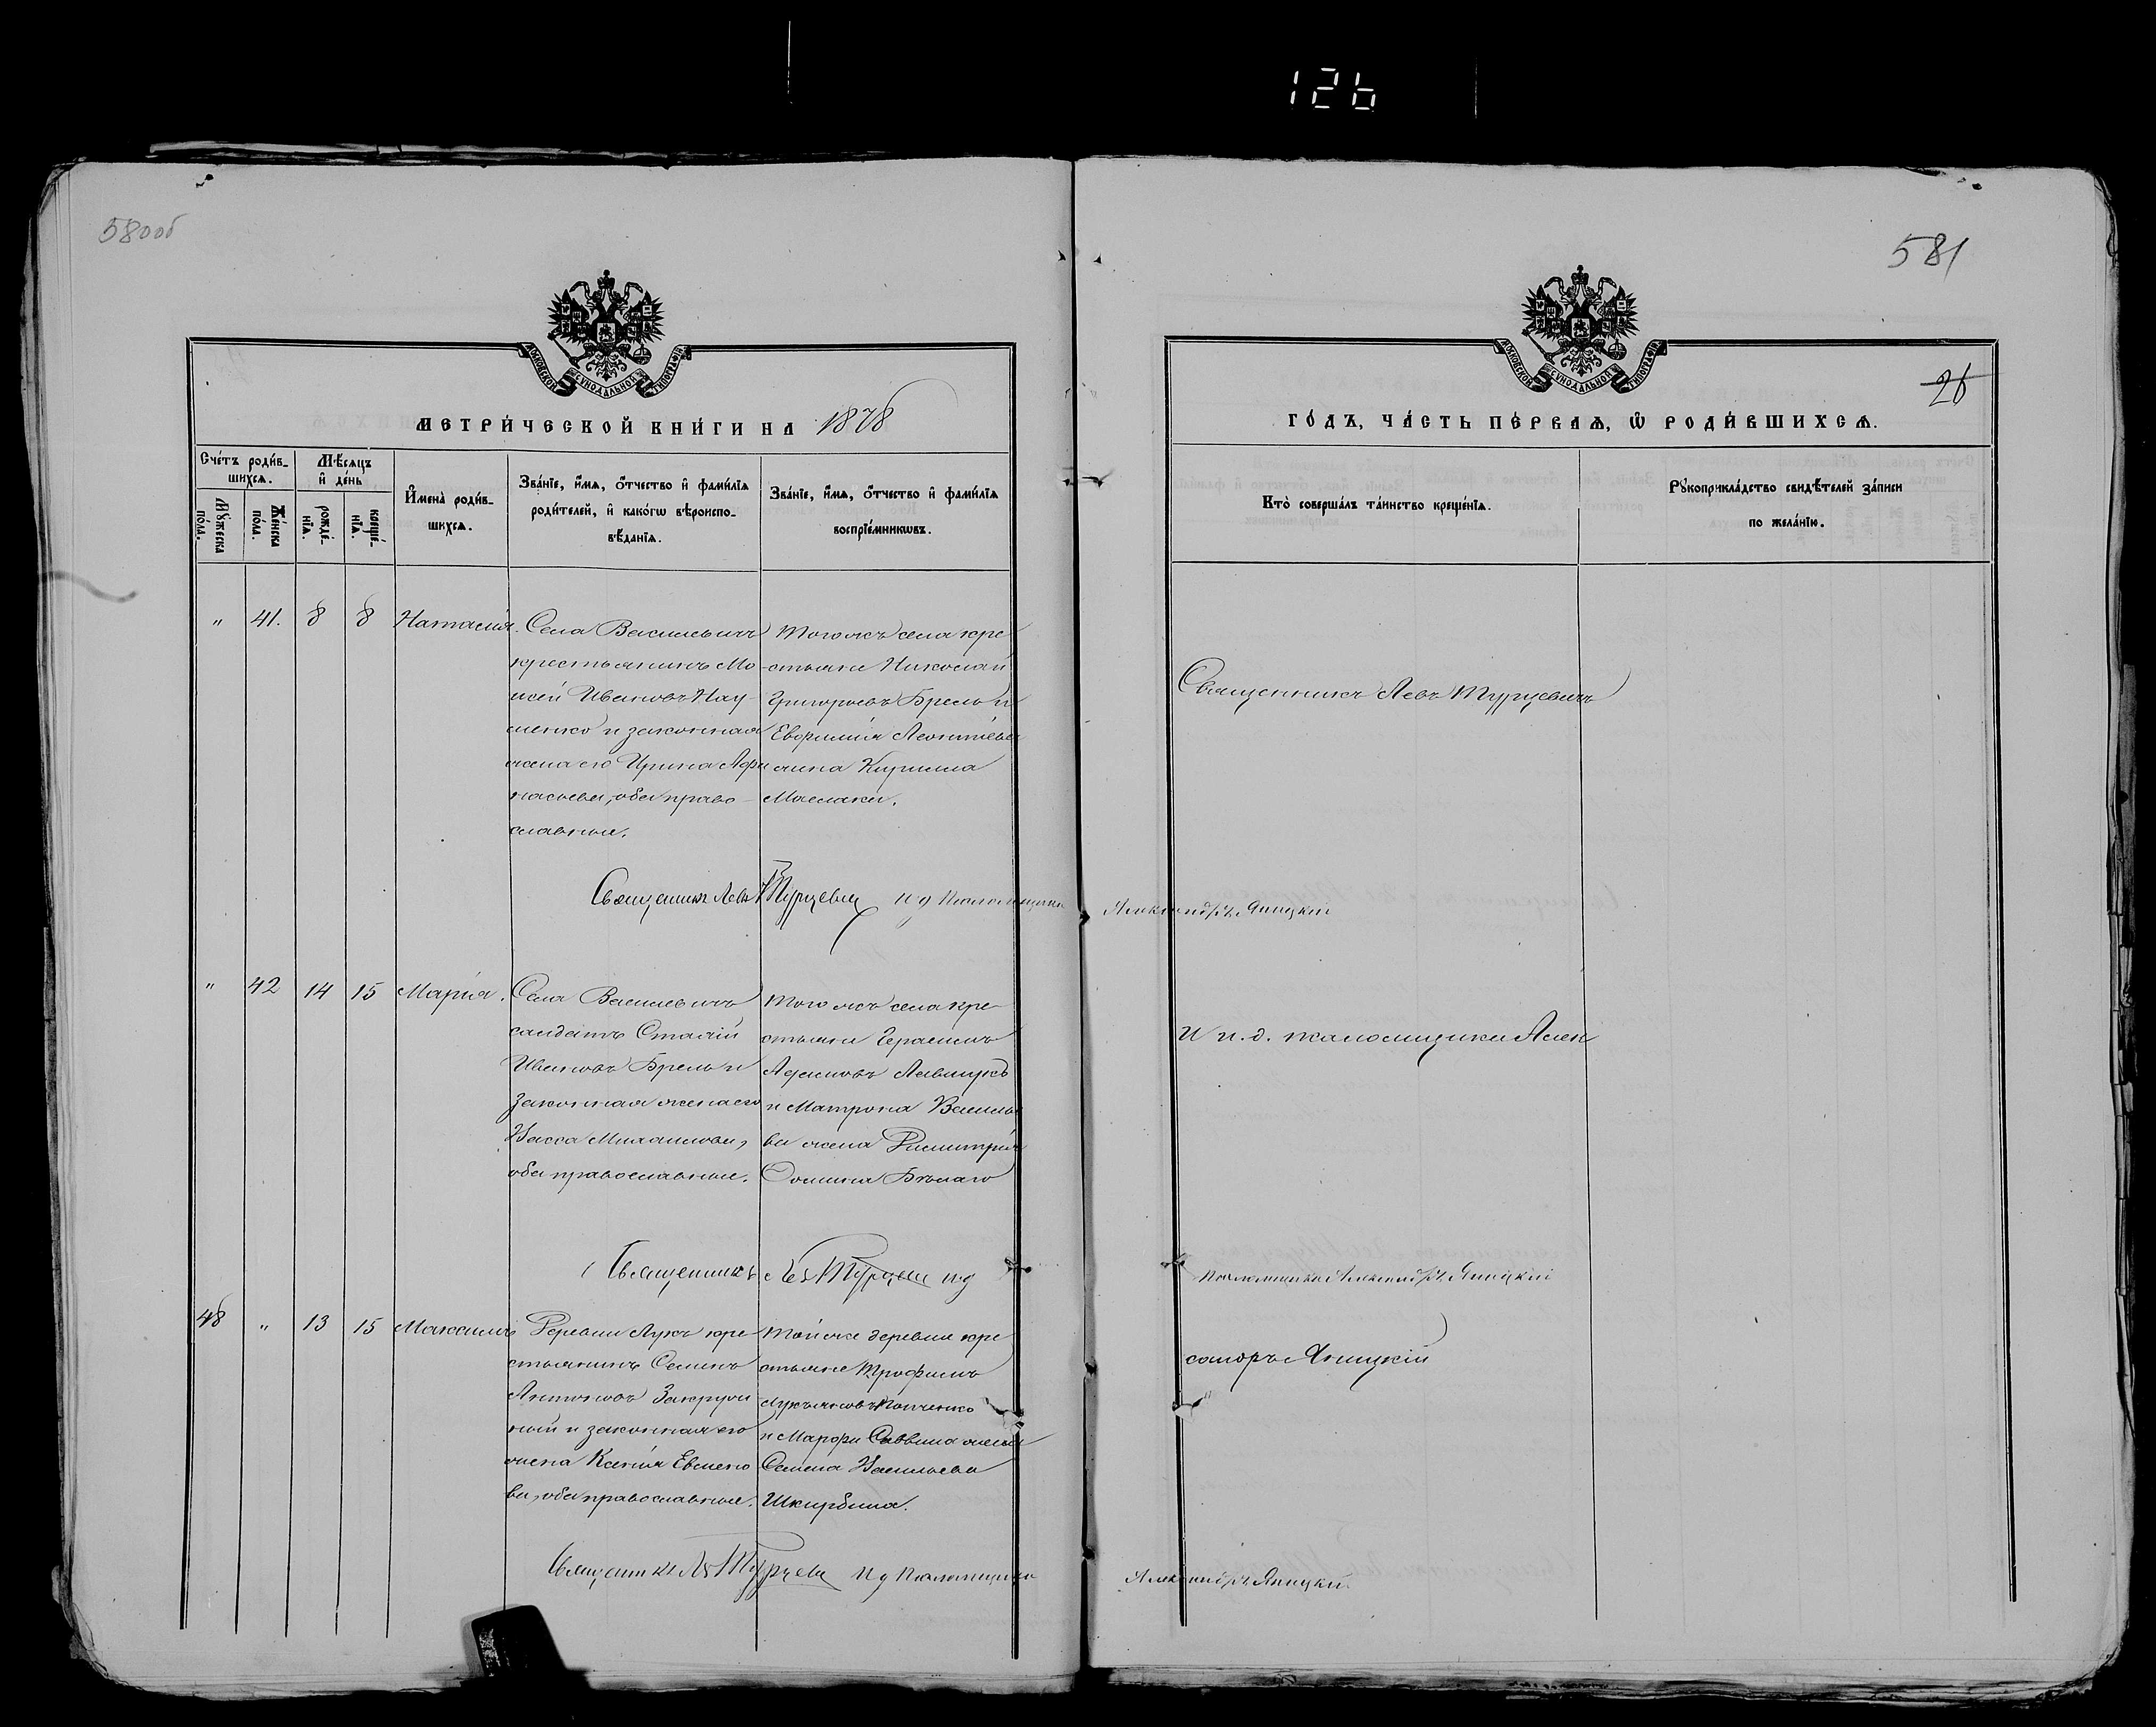 126
580об
581
26
МОСКОВСКОЙ СѴНОДАЛЬНОЙ ТИПОГРАФІИ
МОСКОВСКОЙ СѴНОДАЛЬНОЙ ТИПОГРАФІИ
МЕТРИ́ЧЕСКОЙ КНИ́ГИ НА 1878
ГО́ДЪ, ЧА́СТЬ ПЕ́РВАѦ, Ѡ РОДИ́ВШИХСѦ.
Сче́тъ роди́в-
шихсѧ.
Мꙋ́жеска по́ла.
Же́нска по́ла.
Мѣ́сѧцъ
и де́нь
рожде́-
нїѧ.
креще́-
нїѧ.
Имена̀ роди́в-
шихсѧ.
Зва́нїе, и́мѧ, о́тчество и фами́лїѧ
роди́телей, и како́гѡ вѣроиспо-
вѣ́данїѧ.
Зва́нїе, и́мѧ, о́тчество и фами́лїѧ
воспрїе́мникѡвъ.
Кто̀ соверша́лъ та́инство креще́нїѧ.
Рꙋкоприкла́дство свидѣ́телей за́писи
по жела́нїю.
" 41. 8 8 Наталія.
Села Василевичъ
крестьянинъ Мо-
исей Ивановъ Нау-
менко и законная
жена его Ирина Афа
насьева, оба право-
славные.
Того жъ села кре
стьяне Николай
Григорьевъ Брель и
Евфимія Леонтіева
жена Кирилла
Священникъ Левъ Турцевичъ
Священникъ Левъ Турцевич и д псаломщика Александръ Яницкій
" 42 14 15 Марія.
Села Василевичъ
солдатъ Стахій
Ивановъ Брель и
законная жена его
Васса Михаилова,
оба православные.
Того жъ села кре-
стьяне Герасимъ
Адамовъ Левшукъ
и Матрона Василь
ва жена Димитрія
Бѣлаго
И и. д. псаломщика Алек
Священникъ Левъ Турцевич и д псаломщика Александръ Яницкій
48 " 13 15 Максимъ
Деревни Лукъ кре
стьянинъ Семенъ
Антоновъ
ный и законная его
жена Ксенія Евмено
ва, оба православные.
Той же деревни кре
стьяне Трофимъ
Лукьяновъ
и Марфа Саввина жена
Семена Васильева
Шкирбина.
сандръ Яницкій
Священникъ Левъ Турцевич и д псаломщика Александръ Яницкій